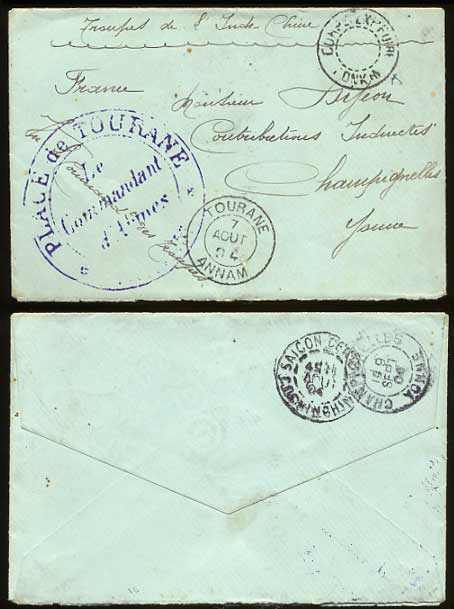 Troupes de l'Indo Chine
CORPS EXPED
TONKIN
France
Monsieur
Contributions Indirectes
Champignelles
Yonne
PLACE de TOURANE
Le
Commandant
d'Armes
TOURANE
7
AOUT
94
ANNAM
SAIGON CENTRAL
COCHINCHINE
CHAMPIGNELLES
YONNE